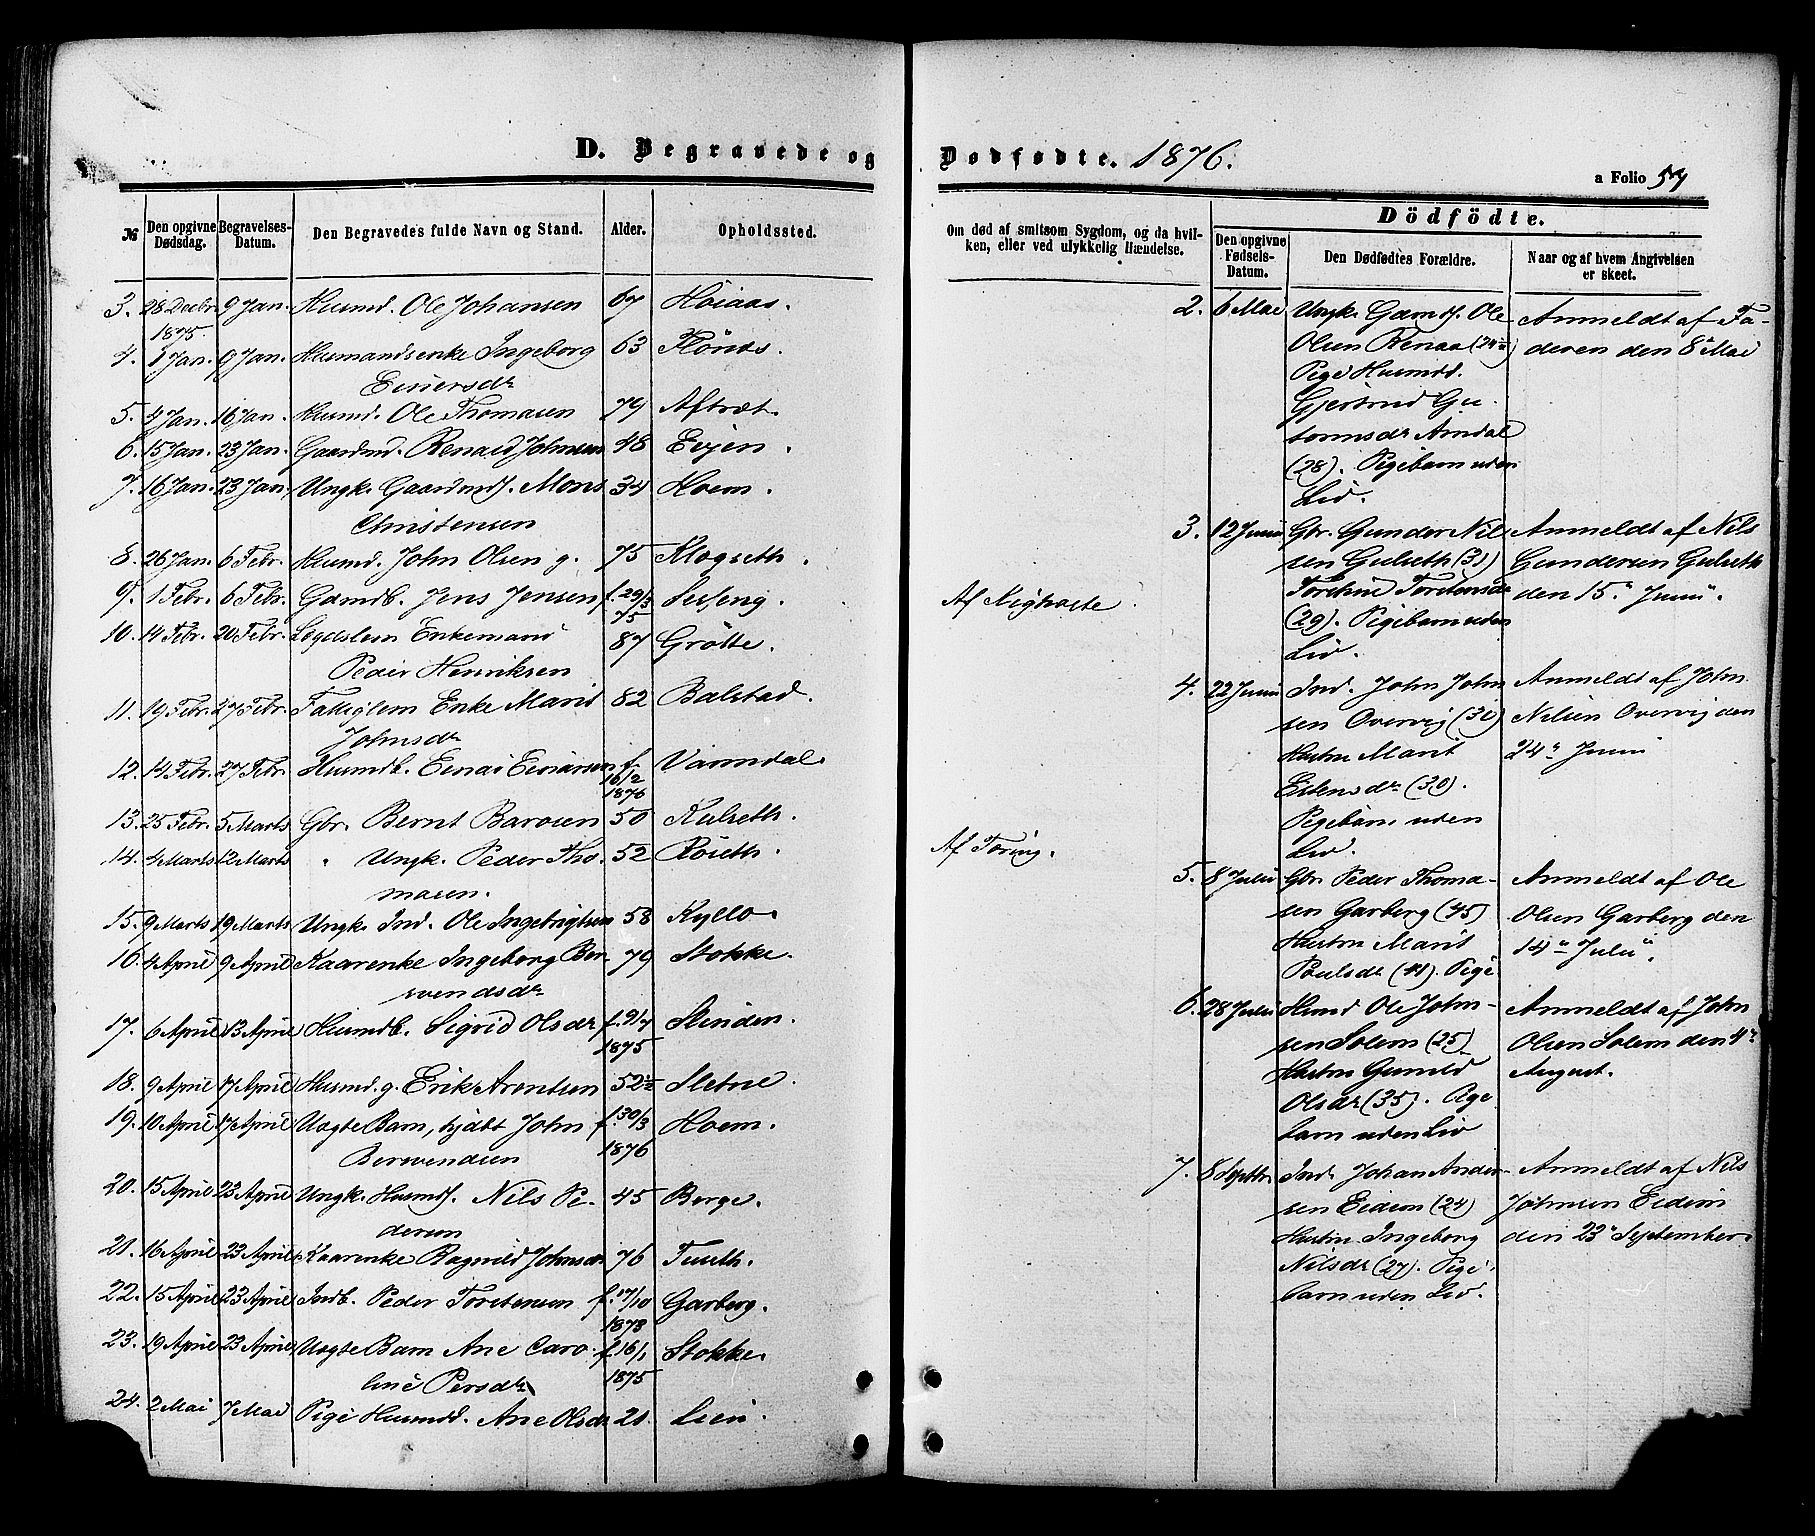 D. Begravede og
№ Den opgivne Dødsdag. Begravelses-Datum. Den Begravedes fulde Navn og Stand. Alder. Opholdssted.
3. 28 Decbr. 1875. 9 Jan. Husmd. Ole Johansen 67 Høiaas.
4. 1 Jan. 9 Jan. Husmandsenke Ingeborg 63
Einersdr
5. 4 Jan. 16 Jan. Husmd. Ole Thomasen 79 Aftræt.
6. 15 Jan. 23 Jan. Gaardmd. Renald Johnsen 48 Evjen.
7. 16 Jan. 23 Jan. Ungk. Gaardmds. Mons 34 Hoem.
Christensen
8. 26 Jan. 6 Febr. Husmd. John Olsen g. 75 Klogseth.
9. 1 Febr. 6 Febr. Gdmdb. Jens Jensen f. 29/3 75
10. 14 Febr. 20 Febr. Lægdslem Enkemand 87 Grötte.
Peder Henriksen
11. 19 Febr. 27 Febr. Fattiglem Enke Marit 82 Balstad.
Johnsdr
12. 14 Febr. 27 Febr. Husmdb. Einar Einarsen f. 16/2 1876 Varmdal.
13. 25 Febr. 5 Marts Gbr. Bernt Baroien 50 Kulseth.
14. 4 Marts 12 Marts " Ungk. Peder Tho- 52 Röseth.
masen.
15. 9 Marts 19 Marts Ungk. Ind. Ole Ingebrigtsen 58 Kyllo.
16. 4 April 9 April Kaarenke Ingeborg Ber- 79 Stokke.
svendsdr
17. 6 April 13 April Husmdb. Sigrid Olsdr f. 9/7 1875
18. 9 April 17 April Husmd. g. Erik Arentsen 52½ Sletne.
19. 10 April 17 April Uægte Barn, hjdbt John f. 30/3 1876 Hoem.
Bersvendsen
20. 15 April 23 April Ungk. Husmds. Nils Pe- 45 Berge.
dersen
21. 16 April 23 April Kaarenke Ragnild Johnsdr 76 Tuseth.
22. 15 April 23 April Indb. Peder Torstensen f. 17/10 1878 Garberg.
23. 19 April 23 April Uægte Barn Ane Caro- f. 16/1 1875 Stokke.
line Persdr
24. 2 Mai 7 Mai Pige Husmdd. Ane Olsdr 21 Lien.
Dødfødte. 1876.
a Folio 57
Om død af smitsom Sygdom, og da hvil-
ken, eller ved ulykkelig Hændelse.
Dödfödte.
Den opgivne Fødsels-Datum. Den Dødfødtes Forældre. Naar og af hvem Angivelsen er skeet.
Af Kighoste.
Af Tæring.
2. 6 Mai Ungk. Gdmds. Ole Anmeldt af Fa-
Olsen Renaa (24½) deren den 8 Mai
Pige Husmdd.
Gjertrud Gu-
tormsdr Amdal
(28). Pigebarn uden
Liv.
3. 12 Junii Gbr. Gunder Nil- Anmeldt af Nils
sen Gulseth (31) Gundersen Gulseth
Torstensdr den 15. Junii.
(29). Pigebarn uden
Liv.
4. 22 Junii Ind. John John- Anmeldt af John
sen Overvig (30) Nilsen Overvig den
Hustru Marit 24" Junii
Estensdr (30).
Pigebarn uden
Liv.
5. 8 Julii Gbr. Peder Thoma- Anmeldt af Ole
sen Garberg (45) Olsen Garberg den
Hustru Marit 14" Julii".
Poulsdr (41). Pige
6. 28 Julii Husmd Ole John- Anmeldt af John
sen Solem (25) Olsen Solem den 4"
Hustru Gunild August.
Olsdr (35). Pige
barn uden Liv
7. 8 Septbr Ind. Johan Ander- Anmeldt af Nils
sen Eidem (24) Johnsen Eidem
Hustru Ingeborg den 23" September.
Nilsdr (27). Pige
barn uden Liv.